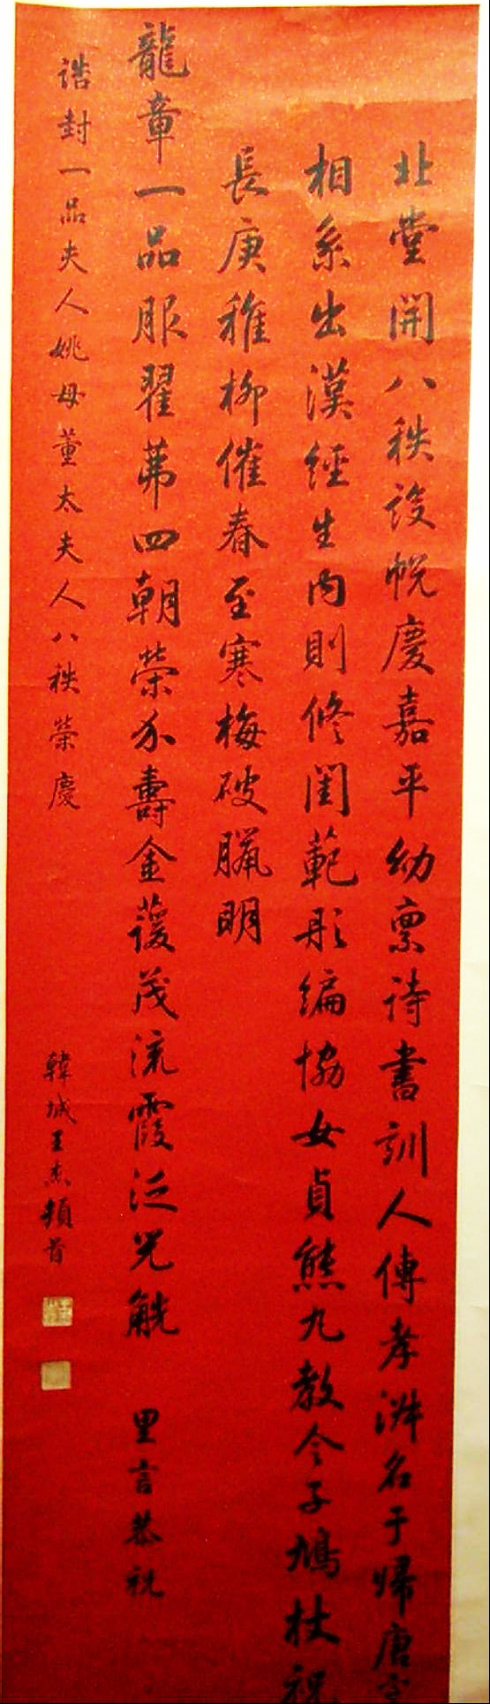 北堂開八秩設帨慶嘉平幼稟詩書訓人傳孝淑名于歸唐
相系出漢經生內則修閨範彤編協女貞熊丸教令子鳩杖祝
長庚稚柳催春至寒梅破臘明
龍章一品服翟茀四朝榮介壽金萲茂流霞泛兕觥 里言恭祝
誥封一品夫人姚母董太夫人八秩榮慶
韓城王杰頓首